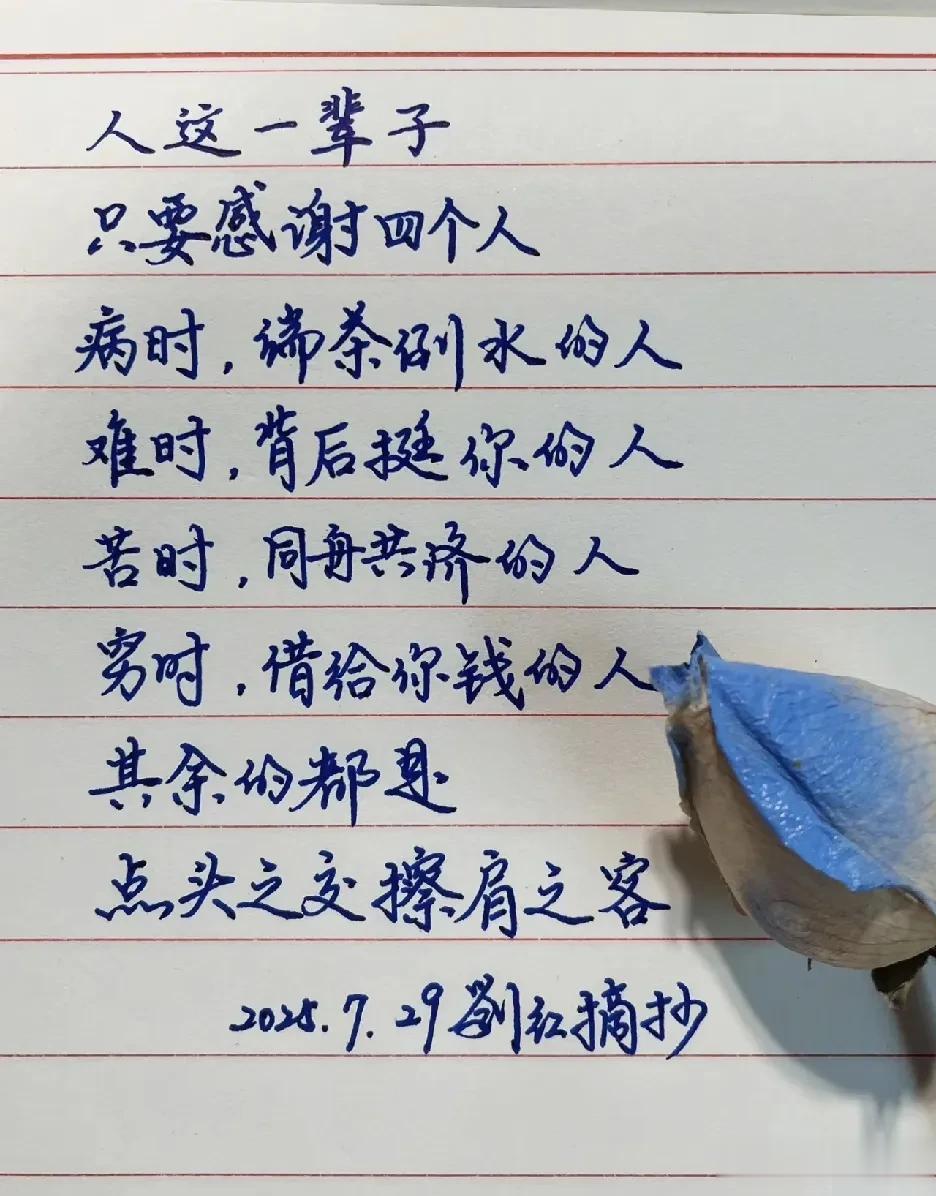 人这一辈子
只要感谢四个人
病时,端茶倒水的人
难时,背后挺你的人
苦时,同舟共济的人
穷时,借给你钱的人
其余的都是
点头之交擦肩之客
2025.7.29劉红摘抄